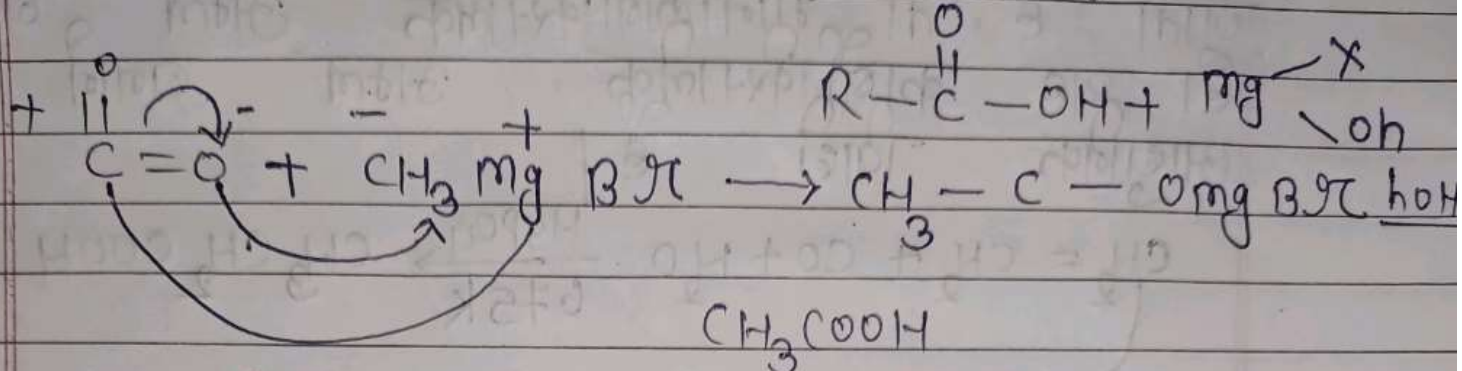 O
O
||
R - C - OH + Mg X
oh
+ || - - +
C = O + CH₃ Mg Br ⟶ CH₃ - C - Omg Br hOH
CH₃COOH